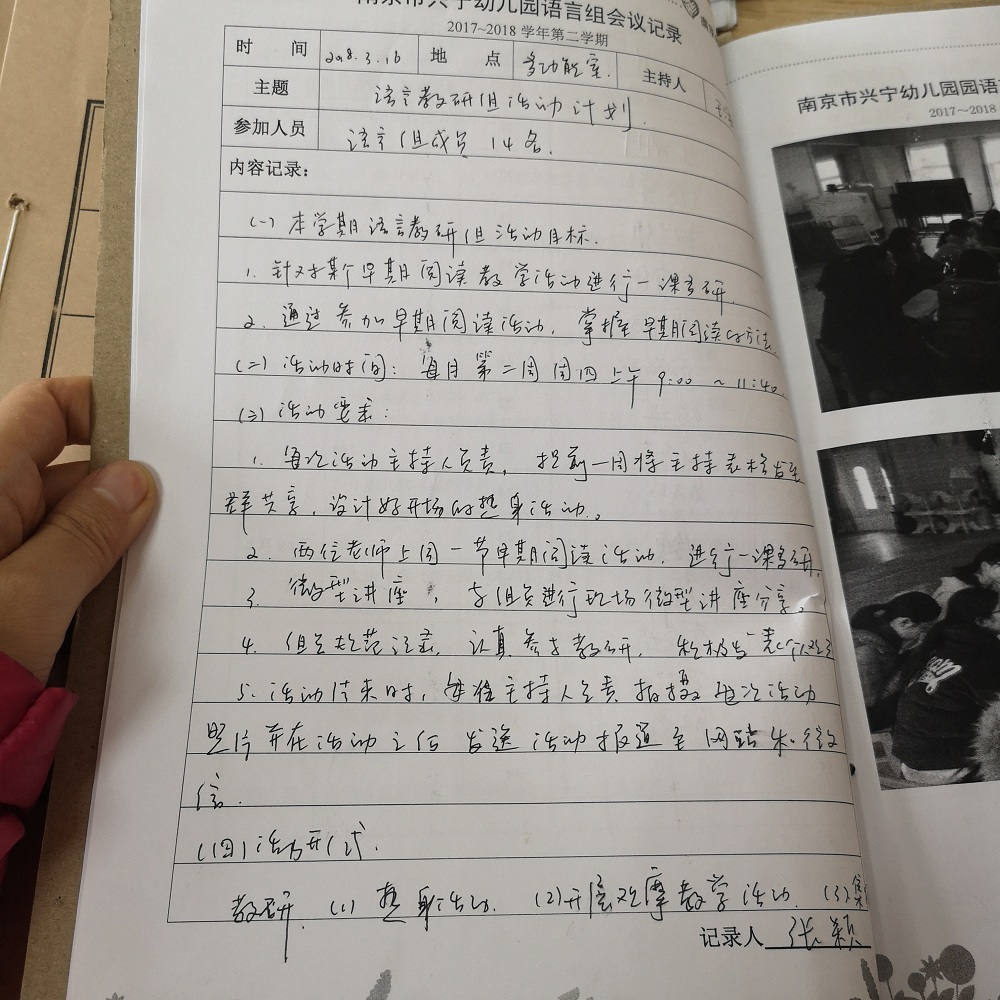 南京市兴宁幼儿园语言组会议记录
2017~2018 学年第二学期
时 间 2018.3.16 地 点 多功能室. 主持人
主题 语言教研组活动计划.
参加人员 语言组成员 14名.
内容记录:
(一) 本学期语言教研组活动目标.
1. 针对某个早期阅读教学活动进行一课多研.
2. 通过参加早期阅读活动, 掌握早期阅读的方法.
(二) 活动时间: 每月第二周周四上午 9:00 ~ 11:40
(三) 活动要求:
1. 每次活动主持人负责, 提前一周将主持表格发至
群共享, 设计好开场的热身活动.
2. 两位老师上同一节早期阅读活动, 进行一课多研.
3. 微型讲座, 与组员进行现场微型讲座分享.
4. 组员 认真参与教研, 积极发表个人
5. 活动结束时, 主持人负责拍摄每次活动
照片并在活动之后发送活动报道至网站和微
信.
(四) 活动形式.
教研 (1) 热身活动. (2) 开展观摩教学活动. (3) 集
记录人 张颖
南京市兴宁幼儿园园语
2017～2018